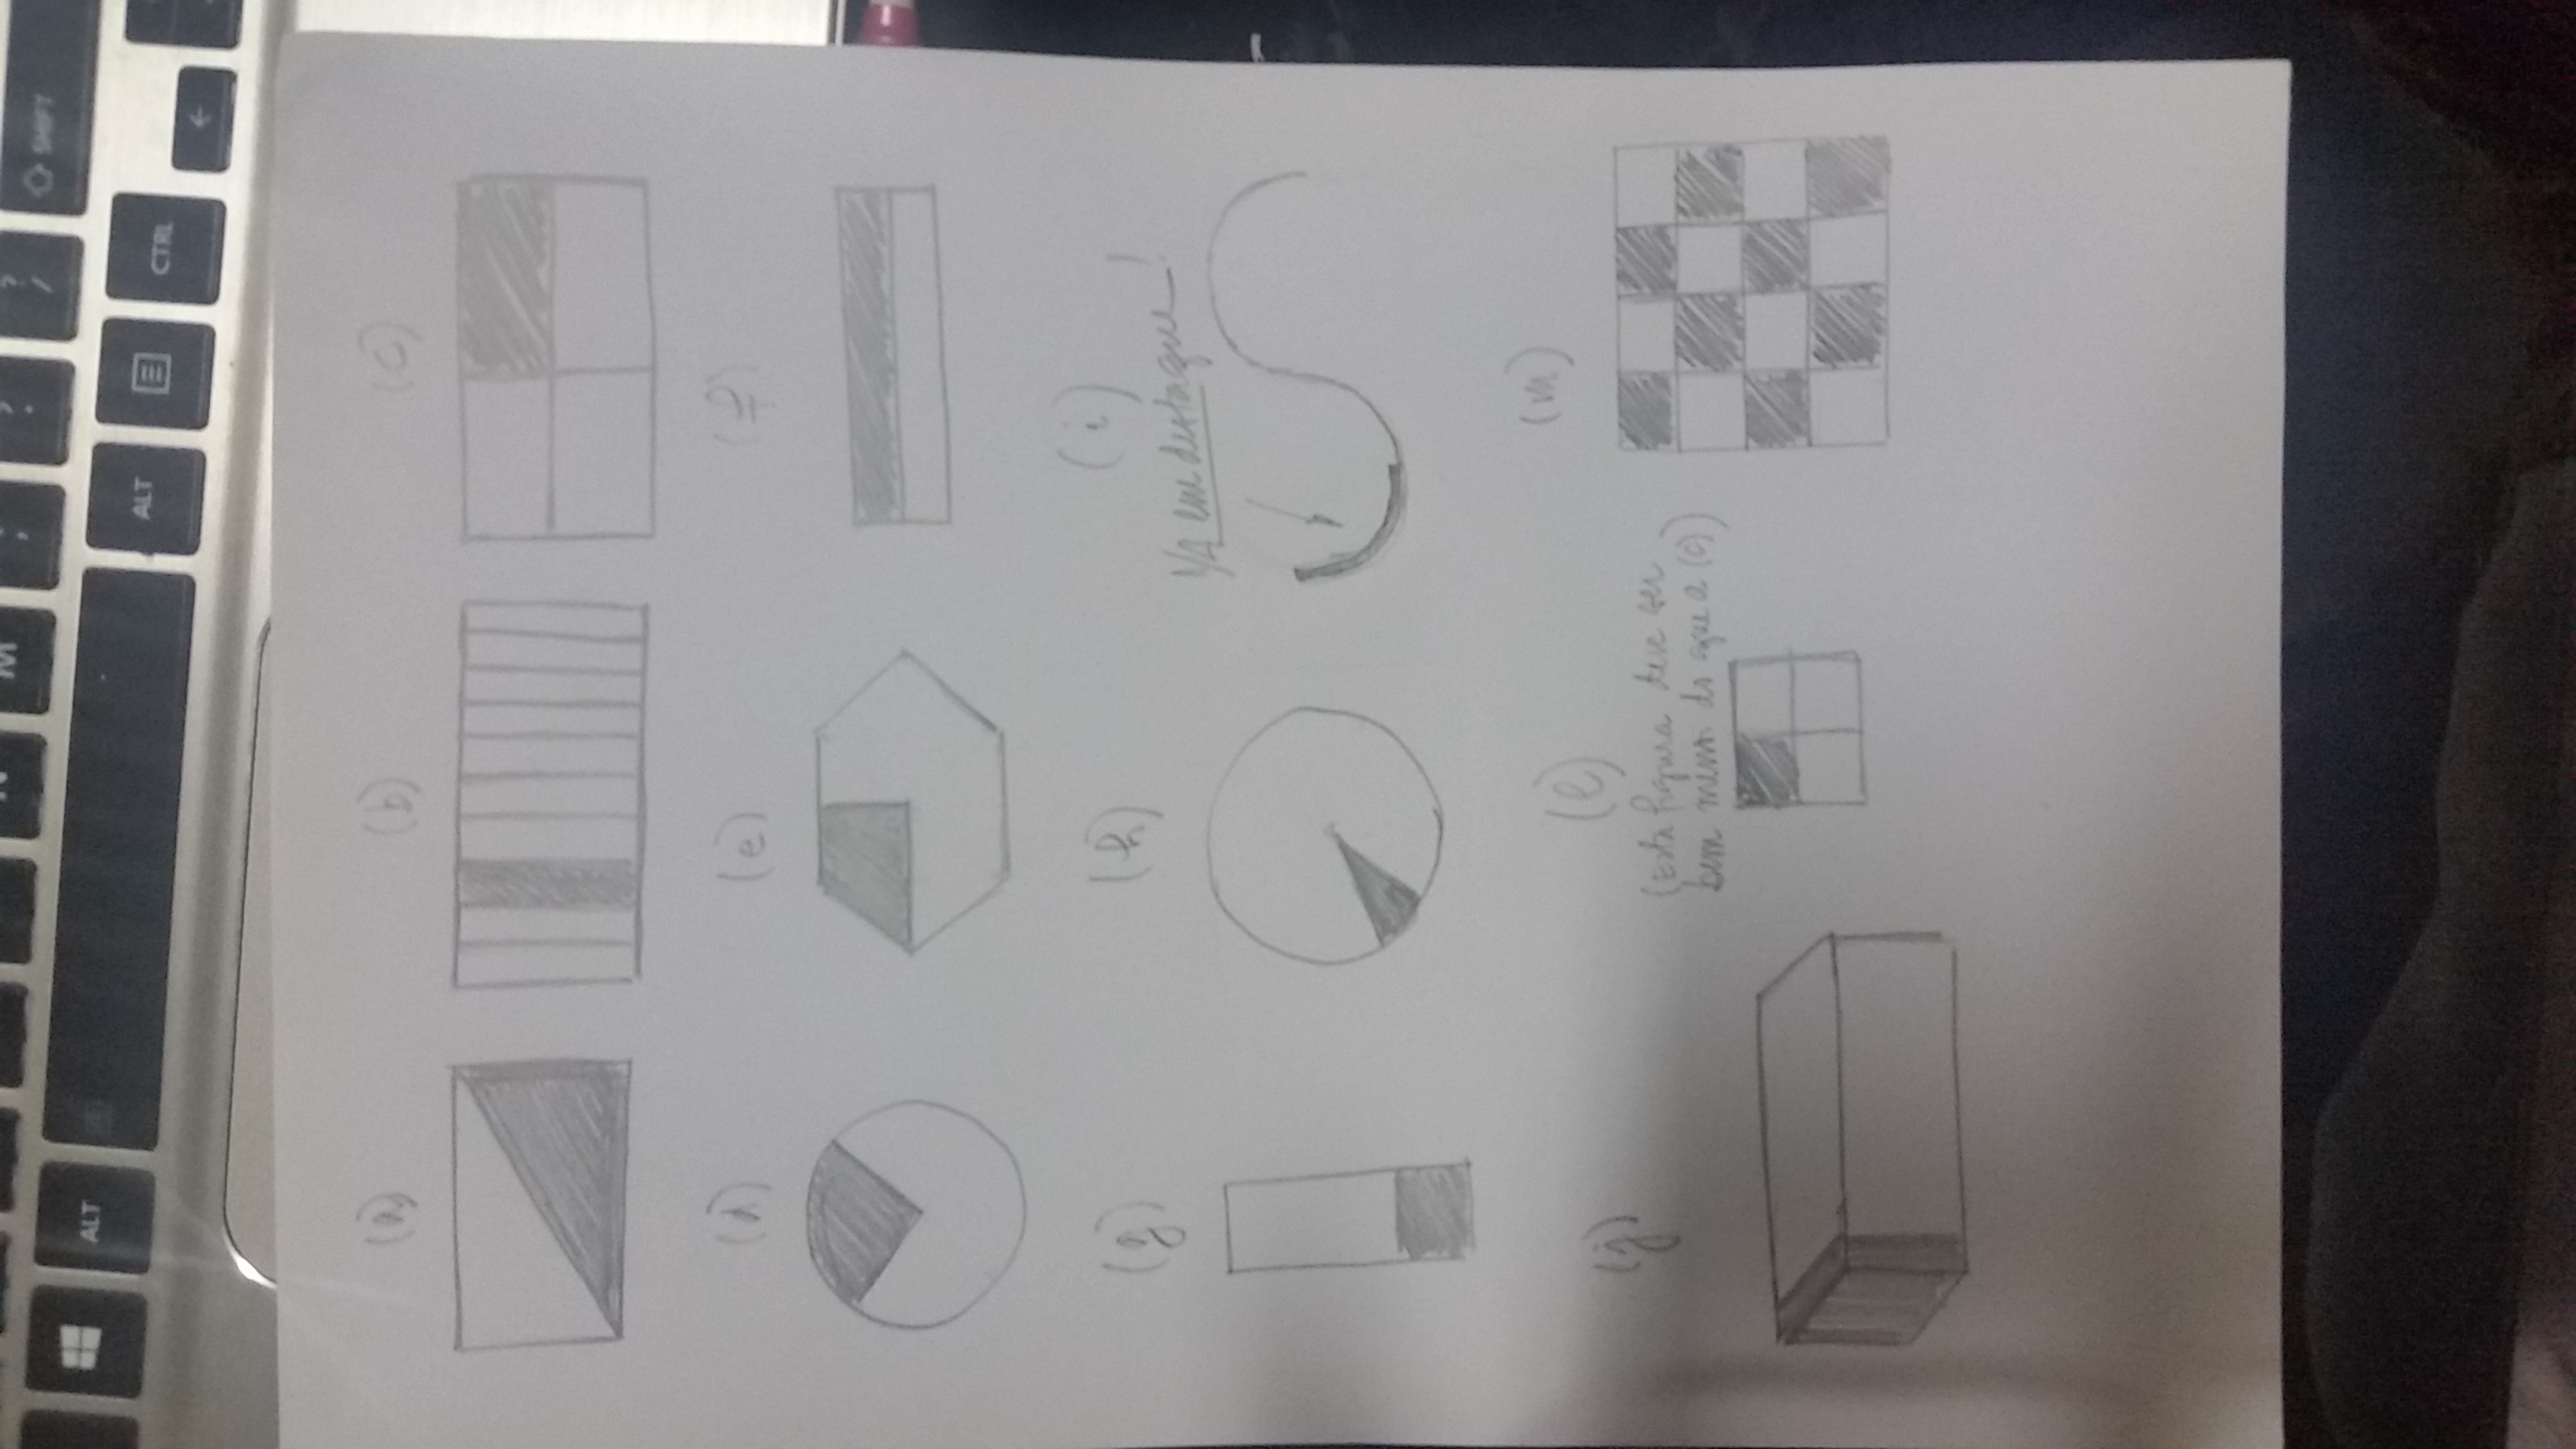 N M
ALT ALT CTRL SHIFT
(a) (b) (c)
(d) (e) (f)
(g) (h) (i)
1/4 em destaque!
(j) (l) (m)
(Esta figura deve ser
bem menor do que a (c))